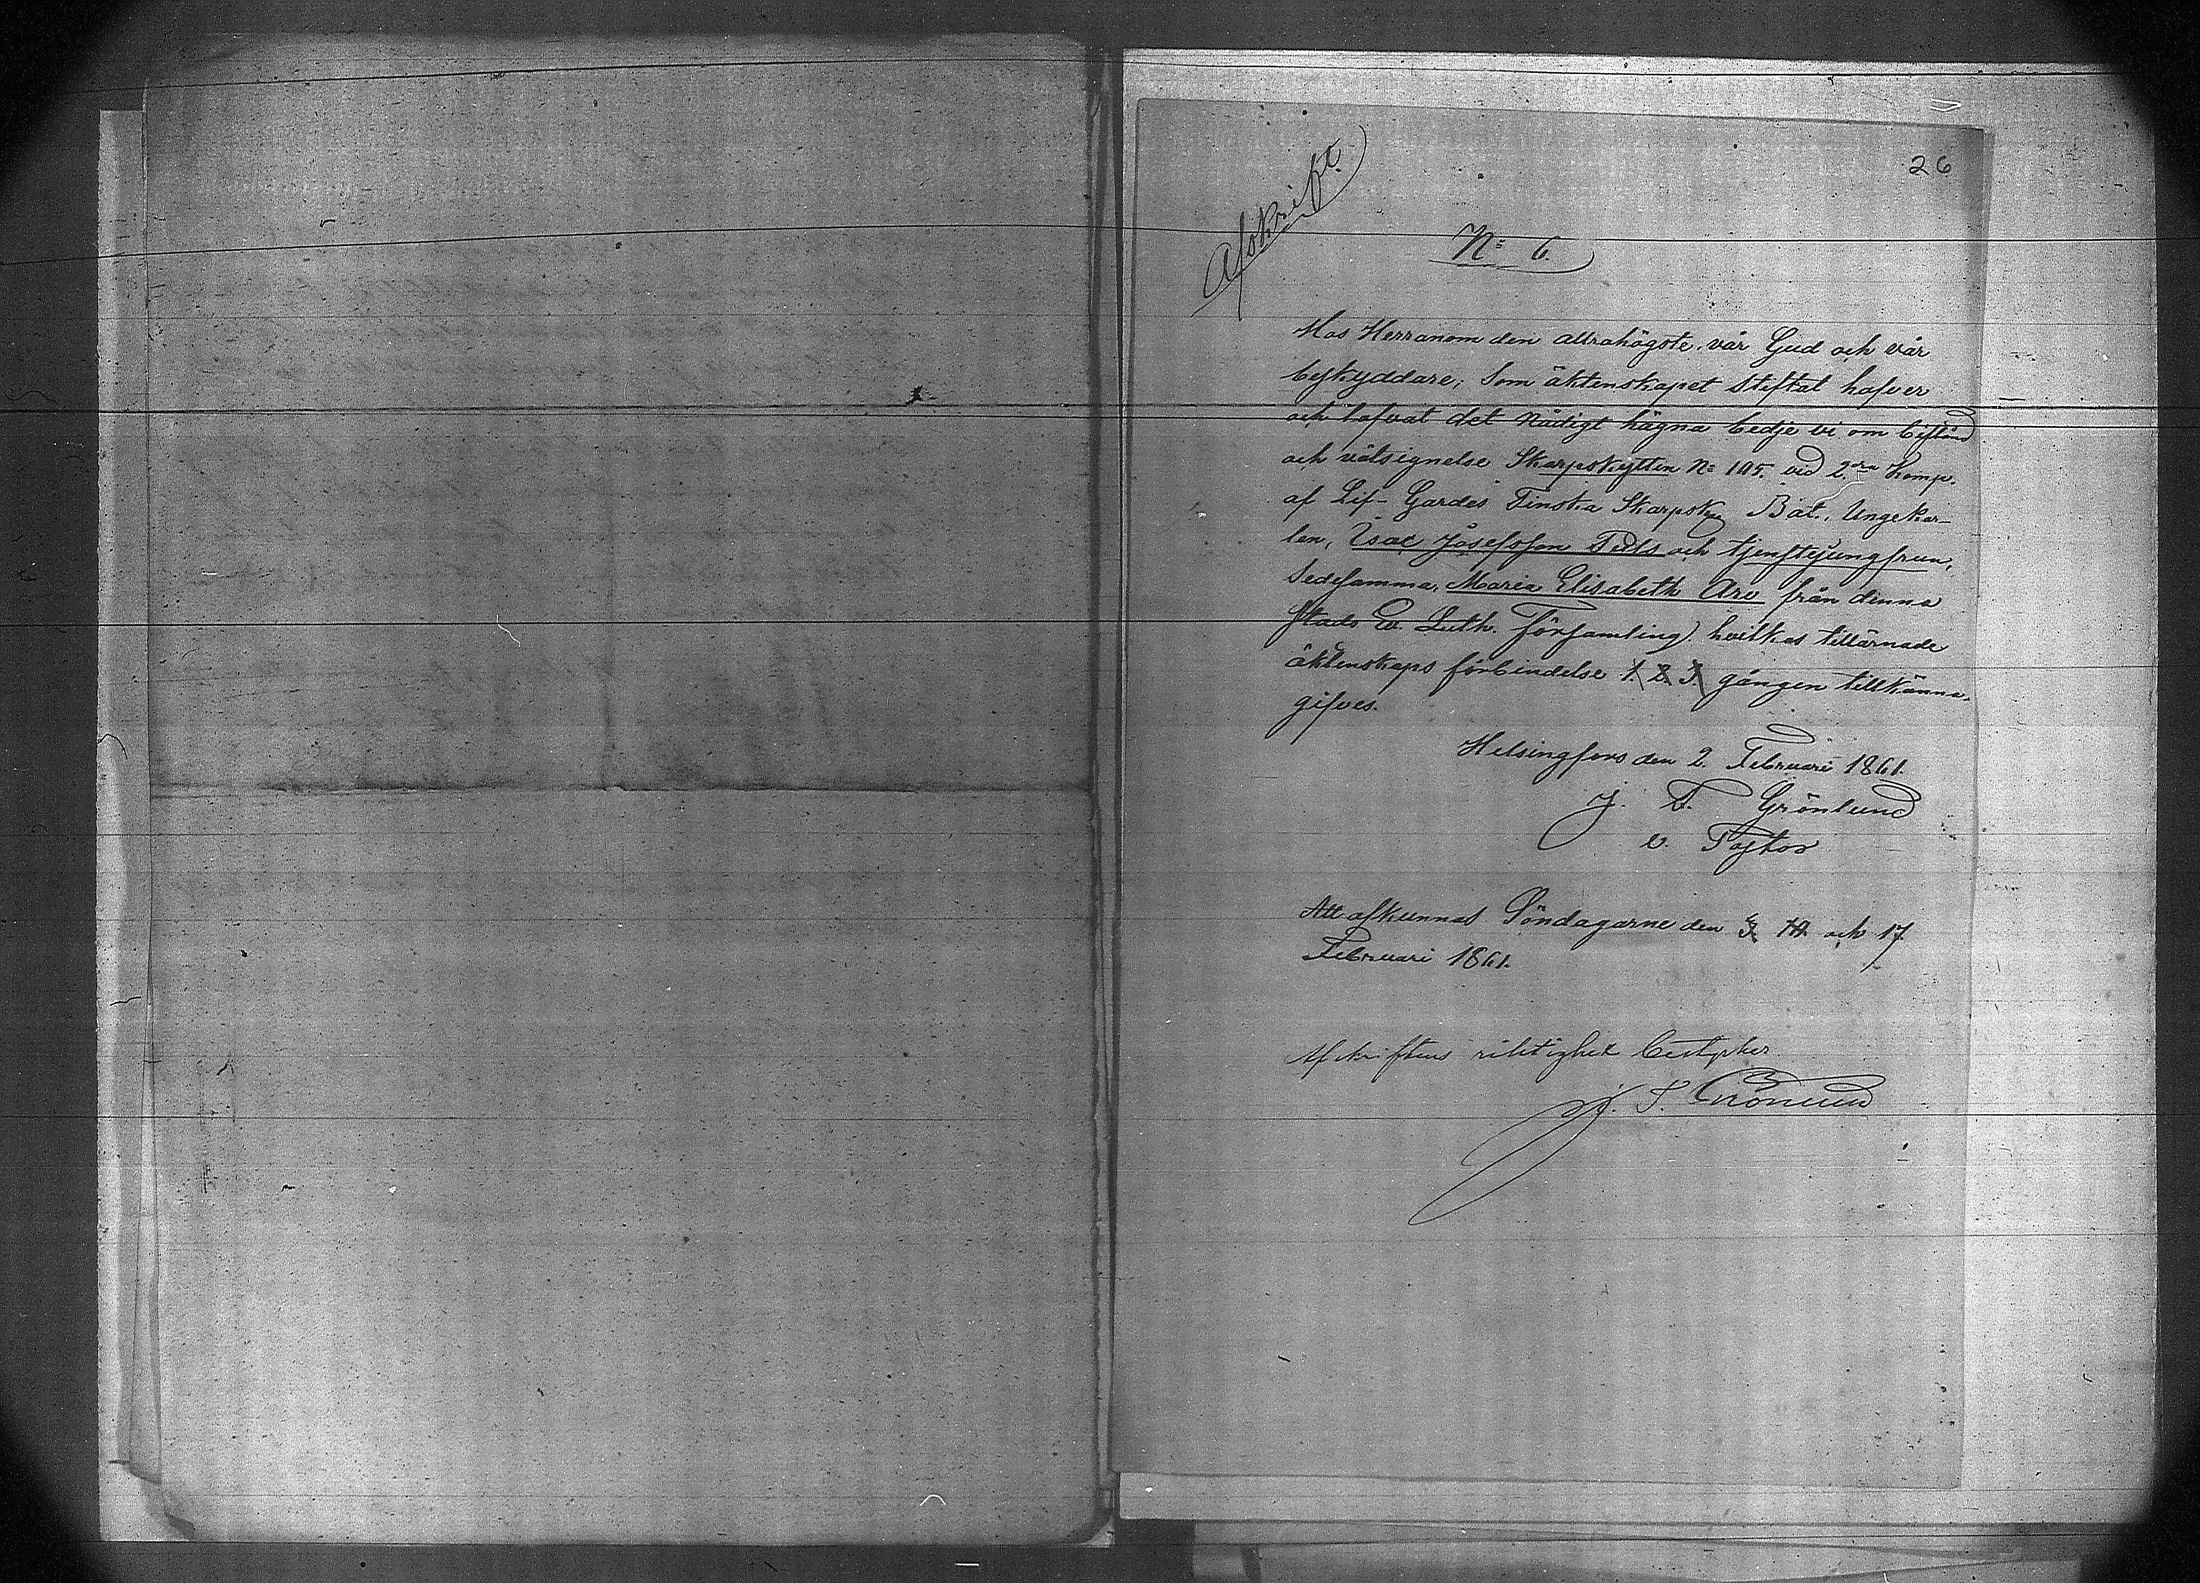 26
Afskrift.
N:o 6.
Hos Herranom den allrahögste, vår Gud och vår
beskyddare, Som äktenskapet stiftat hafver
och lofvat det nådigt hägna bedje vi om bistånd
och välsignelse Skarpskytten N:o 105. vid 2:dra Komp.
af Lif-Gardes Finska Skarpsky Bat., Ungekar-
len, Isac Josefsson Puls och tjenstejungfrun,
Sedesamma, Maria Elisabeth Aro från denna
Stads Ev. Luth. Församling, hvilkas tillärnade
äktenskaps förbindelse 1. 2. 3. gången tillkänna-
gifves.
Helsingfors den 2. Februari 1861.
J. F. Grönlund
v. Pastor
Att afkunnas Söndagarne den 3. 10. och 17.
Februari 1861.
Afskriftens riktighet bestyrker
J. F. Grönlund